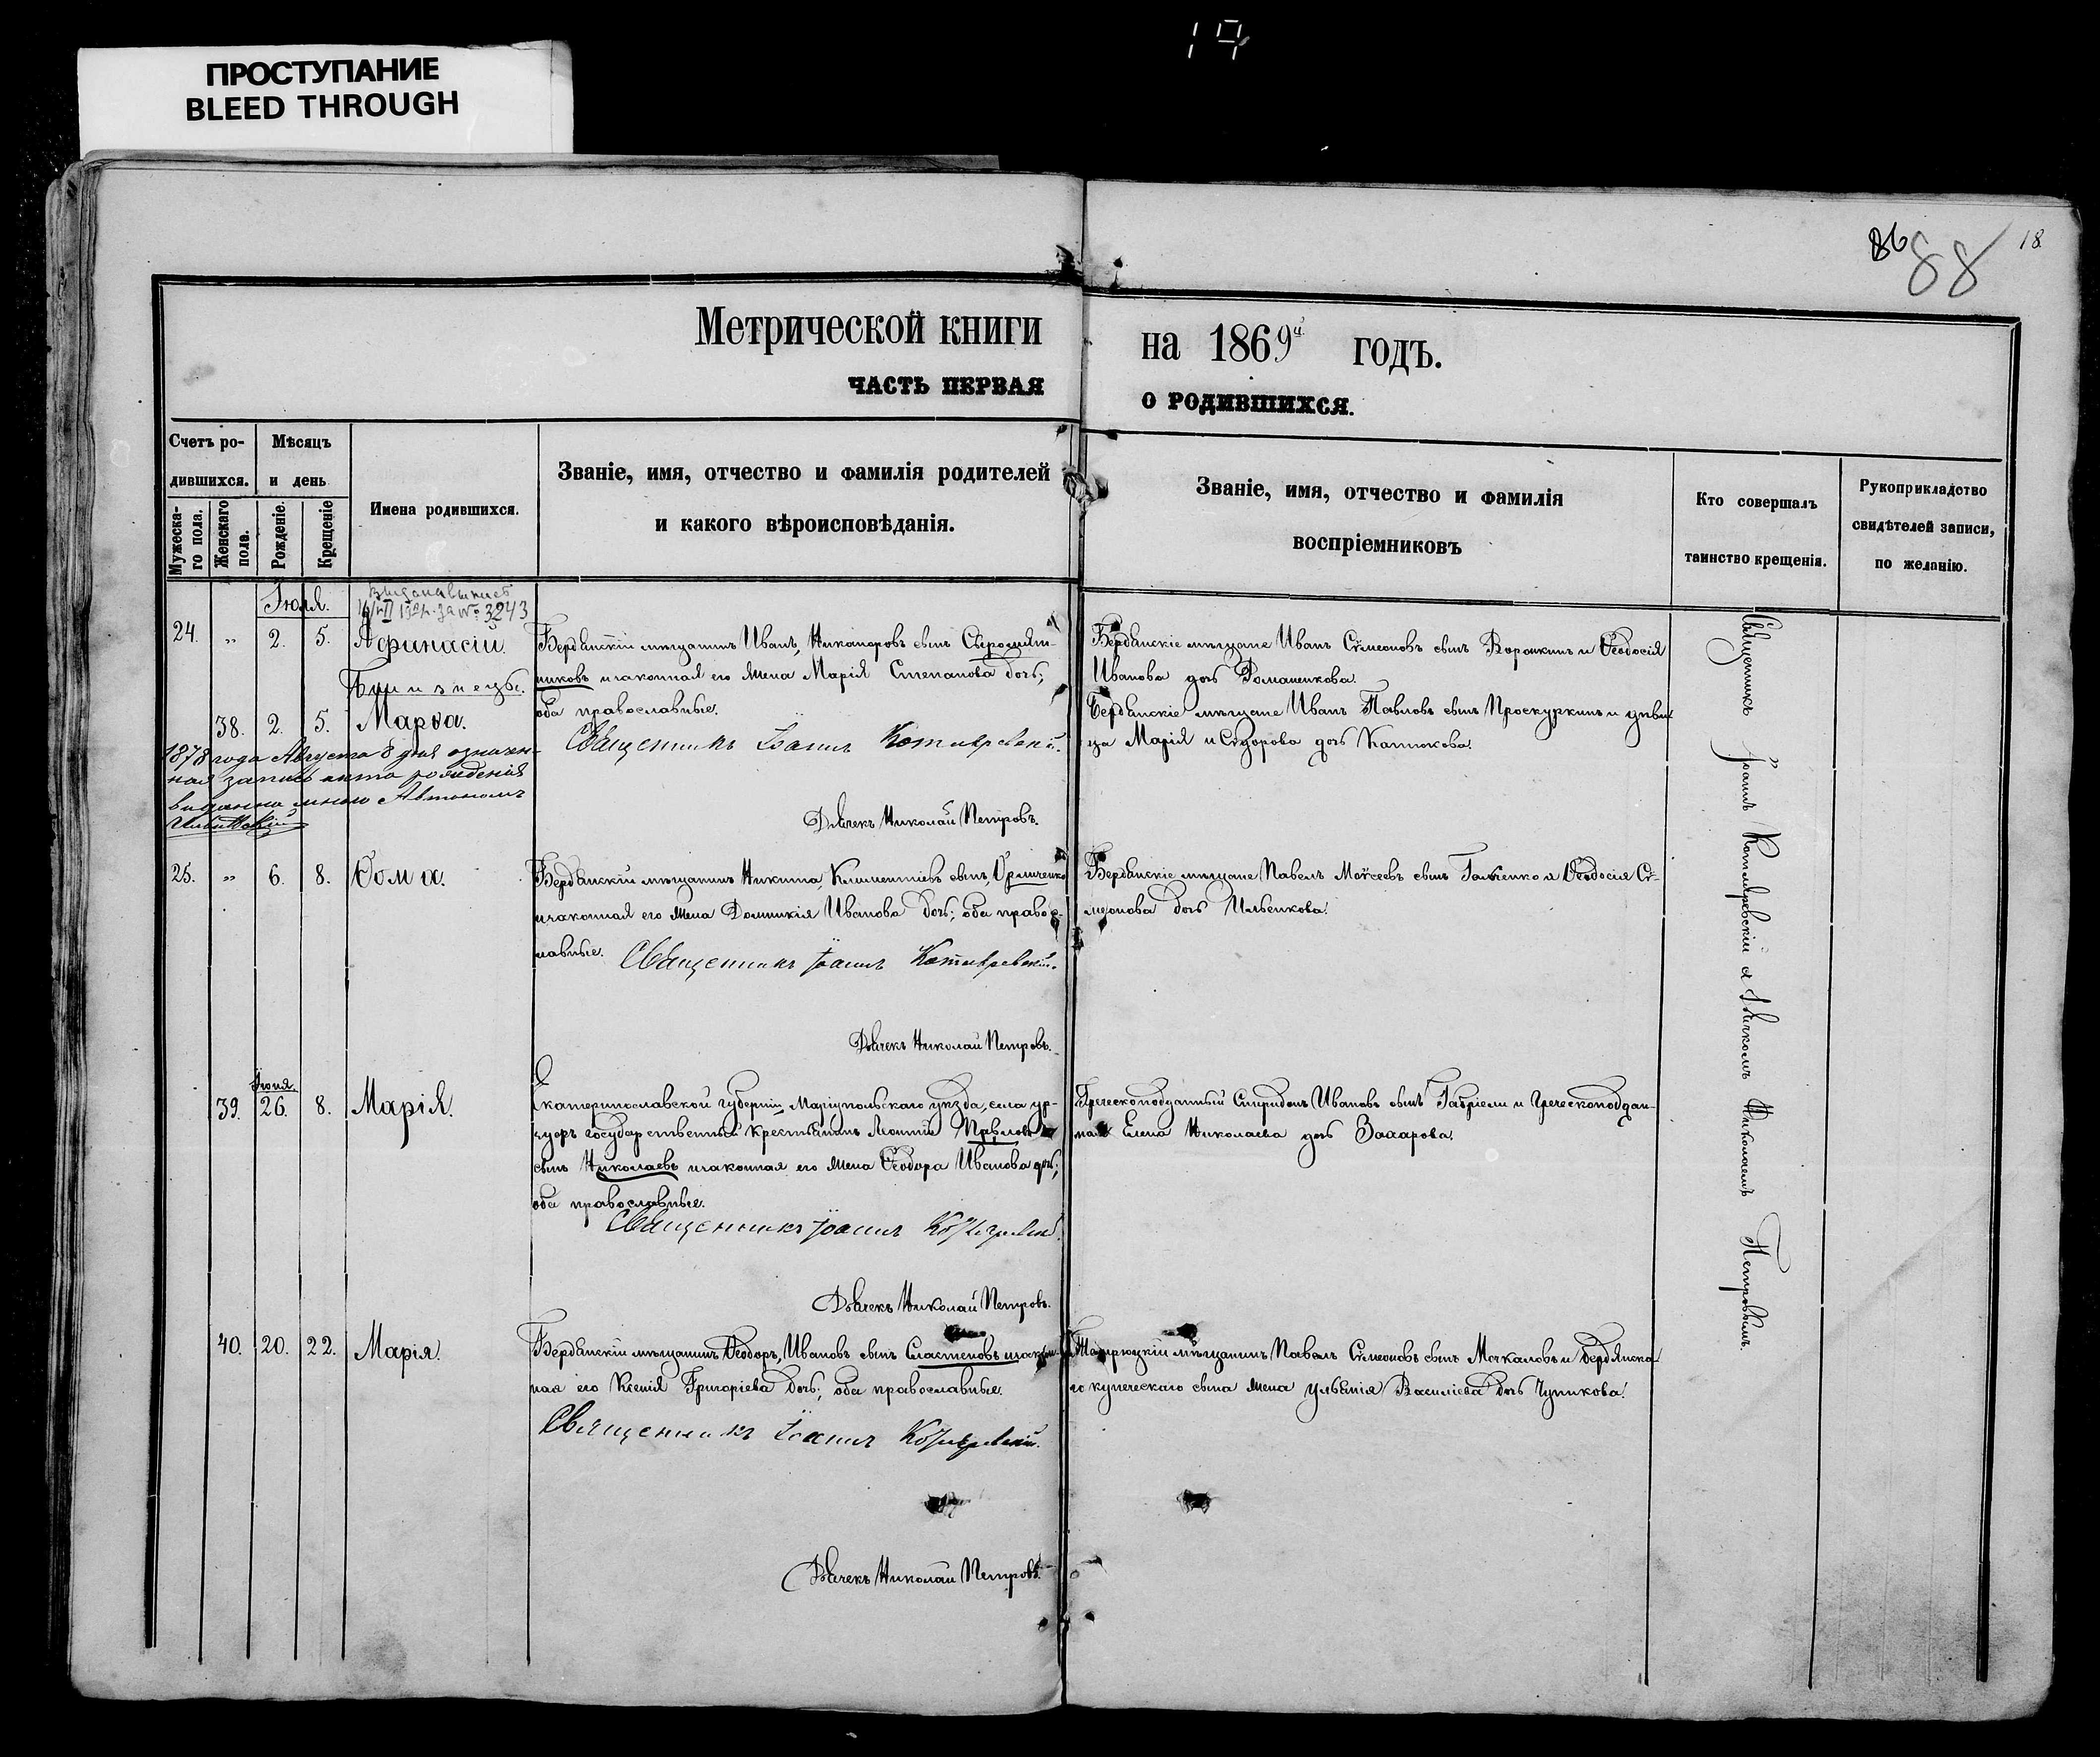 ПРОСТУПАНИЕ
BLEED THROUGH
17
86
88
18
Метрической книги на 1869й годъ.
ЧАСТЬ ПЕРВАЯ О РОДИВШИХСЯ.
Счетъ ро-
дившихся.
Мужеска-
го пола.
Женскаго
пола.
Мѣсяцъ
и день
Рожденіе.
Крещеніе
Имена родившихся.
Званіе, имя, отчество и фамилія родителей
и какого вѣроисповѣданія.
Званіе, имя, отчество и фамилія
воспріемниковъ
Кто совершалъ
таинство крещенія.
Рукоприкладство
свидѣтелей записи,
по желанію.
Іюля.
за № 3243
24. „ 2. 5. Аѳинасій.
Близнецы.
38. 2. 5. Марѳа.
Бердянскій мѣщанинъ Иванъ, Никаноровъ сынъ Сыромят-
никовъ изаконная его жена Марія Степанова дочь;
оба православные.
Священникъ Іоаннъ Котляревскій.
Дьячекъ Николай Петровъ.
Бердянскіе мѣщане Иванъ Сѵмеоновъ сынъ Воронкинъ и Ѳеодосія
Иванова дочь Романенкова.
Бердянскіе мѣщане Иванъ Павловъ сынъ Проскуркинъ и дѣви-
ца Марія Исидорова дочь Катюкова.
1878 года Августа 8 дня означен-
ная запись акта рожденія
выданна мною
25. „ 6. 8. Ѳома.
Бердянскій мѣщанинъ Никита, Климентіевъ сынъ, Ѳрличенко
изаконная его жена Домникія Иванова дочь; оба правос-
лавные.
Священникъ Іоаннъ Котляревскій.
Дьячекъ Николай Петровъ.
Бердянскіе мѣщане Павелъ Моѵсеевъ сынъ Галченко и Ѳеодосія Сѵ-
меонова дочь Ильенкова.
Іюня.
39. 26. 8. Марія.
Екатеринославской губерніи, Маріупольскаго уѣзда, села Ур-
зуфъ государственный крестьянинъ Леонтій Павловъ
сынъ Николаевъ изаконная его жена Ѳеодора Иванова дочь;
оба православные.
Священникъ Іоаннъ Котляревскій.
Дьячекъ Николай Петровъ.
Греческоподданный Спиридонъ Ивановъ сынъ Гавріели и Греческоподдан-
ная Елена Николаева дочь Захарова.
40. 20. 22. Марія.
Бердянскій мѣщанинъ Ѳеодоръ, Ивановъ сынъ Сластеновъ изакон-
ная его Ксенія Григоріева дочь; оба православные.
Священникъ Іоаннъ Котляревскій.
Дьячекъ Николай Петровъ.
Темрюцкій мѣщанинъ Павелъ Сѵмеоновъ сынъ Мочкаловъ и Бердянска-
го купеческаго сына жена Ульянія Василіева дочь Чупикова.
Священникъ Іоаннъ Котляревскій съ дьячкомъ Николаемъ Петровымъ